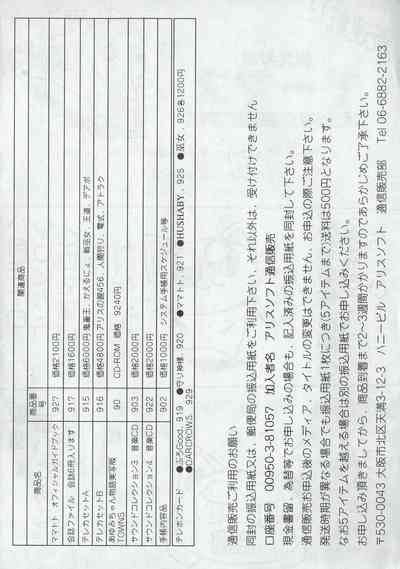 商品名 商品番号 関連商品
ママトト オフィシャルガイドブック 927 価格2100円
会話ファイル 会話6冊入ります 917 価格1600円
テレカセットA 915 価格6000円 鬼畜王、かえるにょ、新巫女、王道、デアボ
テレカセットB 916 価格4800円 アリスの館456、人間狩り、電式、アトラク
あゆみちゃん物語実写版TOWNS 90 CD-ROM 価格 9240円
サウンドコレクション3 音楽CD 903 価格2000円
サウンドコレクション4 音楽CD 922 価格2000円
手帳内容品 902 価格1000円 システム手帳用スケジュール等
テレホンカード ●ぷろGood、919 ●守り神様、920 ●ママトト、921 ●HUSHABY、925 ●巫女、926各1200円
●DARCROWS、929
通信販売ご利用のお願い
同封の振込用紙又は、郵便局の振込用紙をご利用下さい、それ以外は、受け付けできません
口座番号 00950-3-81057 加入者名 アリスソフト通信販売
現金書留、為替等でお申し込みの場合も、記入済みの振込用紙を同封して下さい。
通信販売お申込後のメディア、タイトルの変更はできません、お申込の際ご注意下さい。
発送時期が異なる場合でも振込用紙1枚につき(5アイテムまで)送料は500円となります。
なお5アイテムを越える場合は別の振込用紙でお申し込みください。
お申し込み頂きましてから、商品到着まで2〜3週間かかりますのであらかじめご了承下さい。
〒530-0043 大阪市北区天満3-12-3 ハニービル アリスソフト 通信販売部 Tel 06-6882-2163